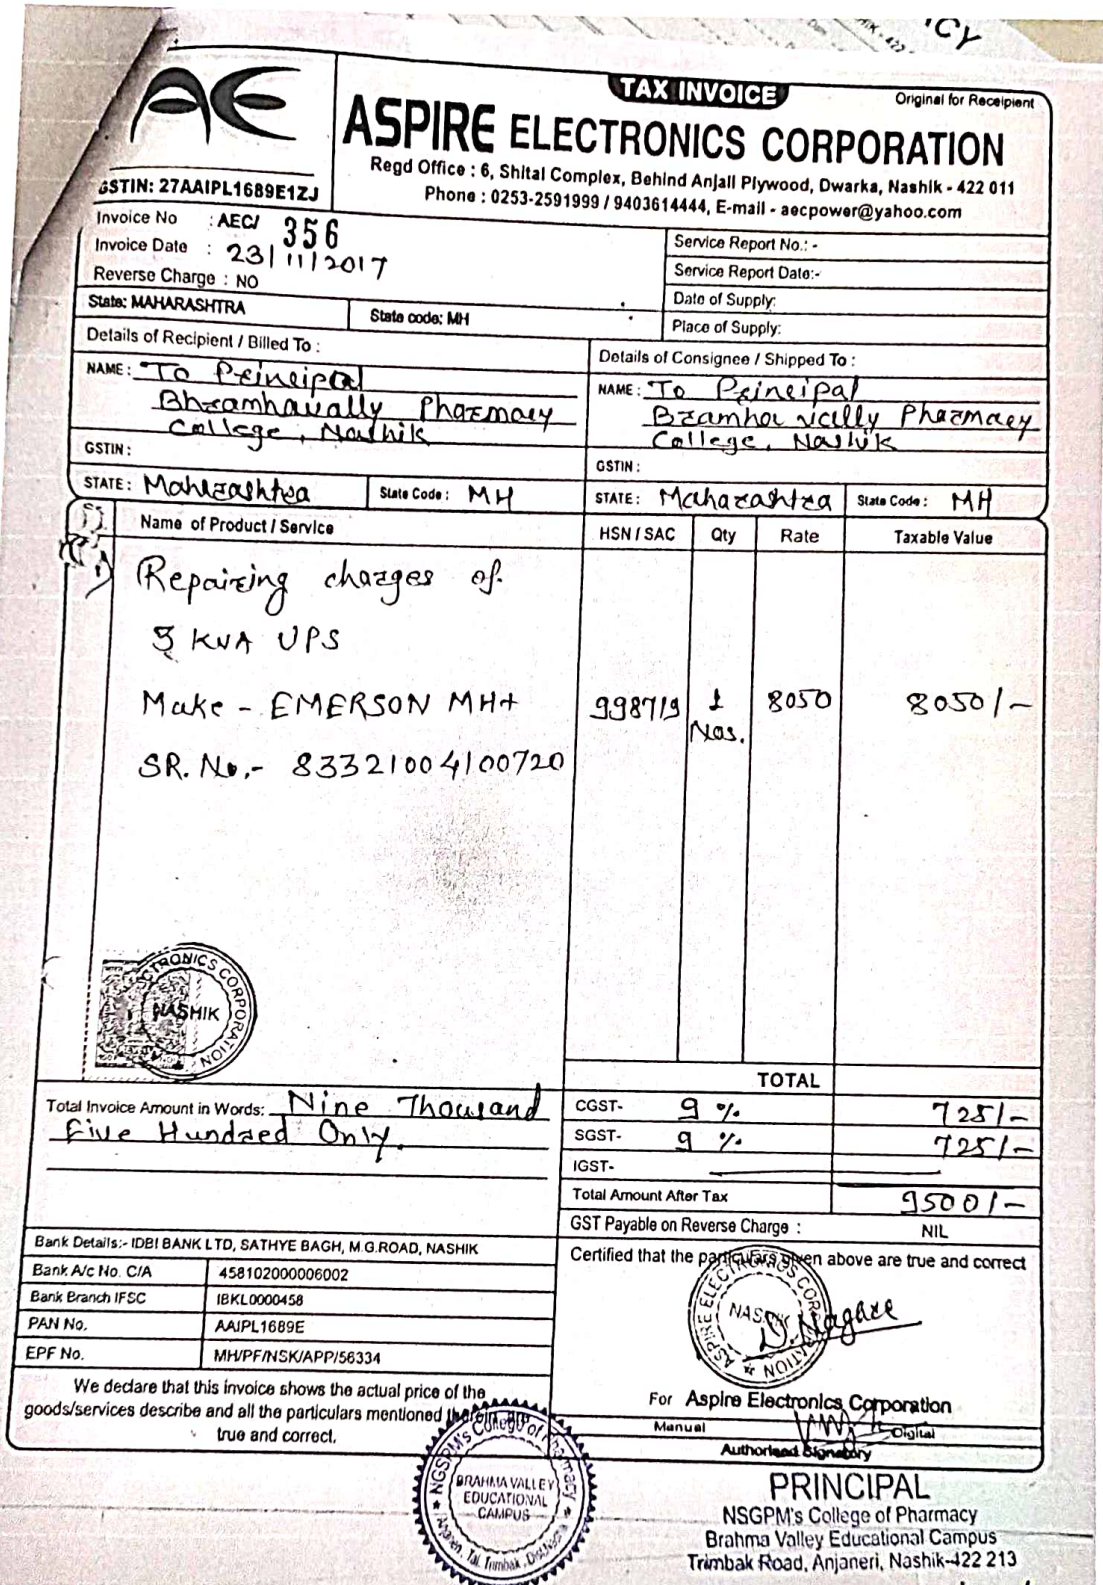 CY
AE
TAX INVOICE
Original for Receipient
ASPIRE ELECTRONICS CORPORATION
Regd Office : 6, Shital Complex, Behind Anjali Plywood, Dwarka, Nashik - 422 011
Phone : 0253-2591999 / 9403614444, E-mail - aecpower@yahoo.com
GSTIN: 27AAIPL1689E1ZJ
Invoice No : AEC/ 356
Invoice Date : 23/11/2017
Reverse Charge : NO
Service Report No.: -
Service Report Date:-
Date of Supply:
Place of Supply:
State: MAHARASHTRA State code: MH
Details of Recipient / Billed To :
NAME : To Principal
Bhramhavally Pharmacy
College, Nashik
GSTIN :
STATE : Maharashtra State Code : MH
Details of Consignee / Shipped To :
NAME : To Principal
Bramha vally Pharmacy
College, Nashik
GSTIN :
STATE : Maharashtra State Code : MH
Name of Product / Service HSN / SAC Qty Rate Taxable Value
1) Repairing charges of
3 KVA UPS
Make - EMERSON MH+ 998719 1 Nos. 8050 8050/-
SR. No.- 83321004100720
ELECTRONICS CORPORATION
NASHIK
TOTAL
Total Invoice Amount in Words: Nine Thousand
Five Hundred Only.
CGST- 9 % 725/-
SGST- 9 % 725/-
IGST-
Total Amount After Tax 9500/-
GST Payable on Reverse Charge : NIL
Bank Details:- IDBI BANK LTD, SATHYE BAGH, M.G.ROAD, NASHIK
Bank A/c No. C/A 458102000006002
Bank Branch IFSC IBKL0000458
PAN No. AAIPL1689E
EPF No. MH/PF/NSK/APP/56334
We declare that this invoice shows the actual price of the
goods/services describe and all the particulars mentioned therein are
true and correct.
Certified that the particulars given above are true and correct
ASPIRE ELECTRONICS CORPORATION
NASHIK
For Aspire Electronics Corporation
Manual Digital
Authorised Signatory
NGSPM's College of Pharmacy
BRAHMA VALLEY
EDUCATIONAL
CAMPUS
PRINCIPAL
NSGPM's College of Pharmacy
Brahma Valley Educational Campus
Trimbak Road, Anjaneri, Nashik-422 213